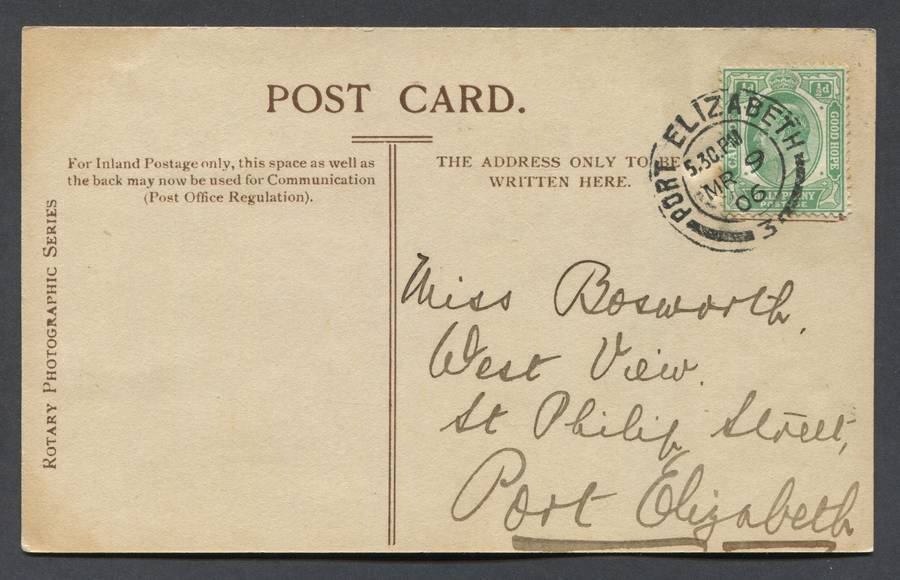 POST CARD.
For Inland Postage only, this space as well as
the back may now be used for Communication
(Post Office Regulation).
THE ADDRESS ONLY TO BE
WRITTEN HERE.
ROTARY PHOTOGRAPHIC SERIES
PORT ELIZABETH
5.30.PM
MR 9
06
3
½d
GOOD HOPE
POSTAGE
Miss Bosworth,
West View.
St Philip Street,
Port Elizabeth